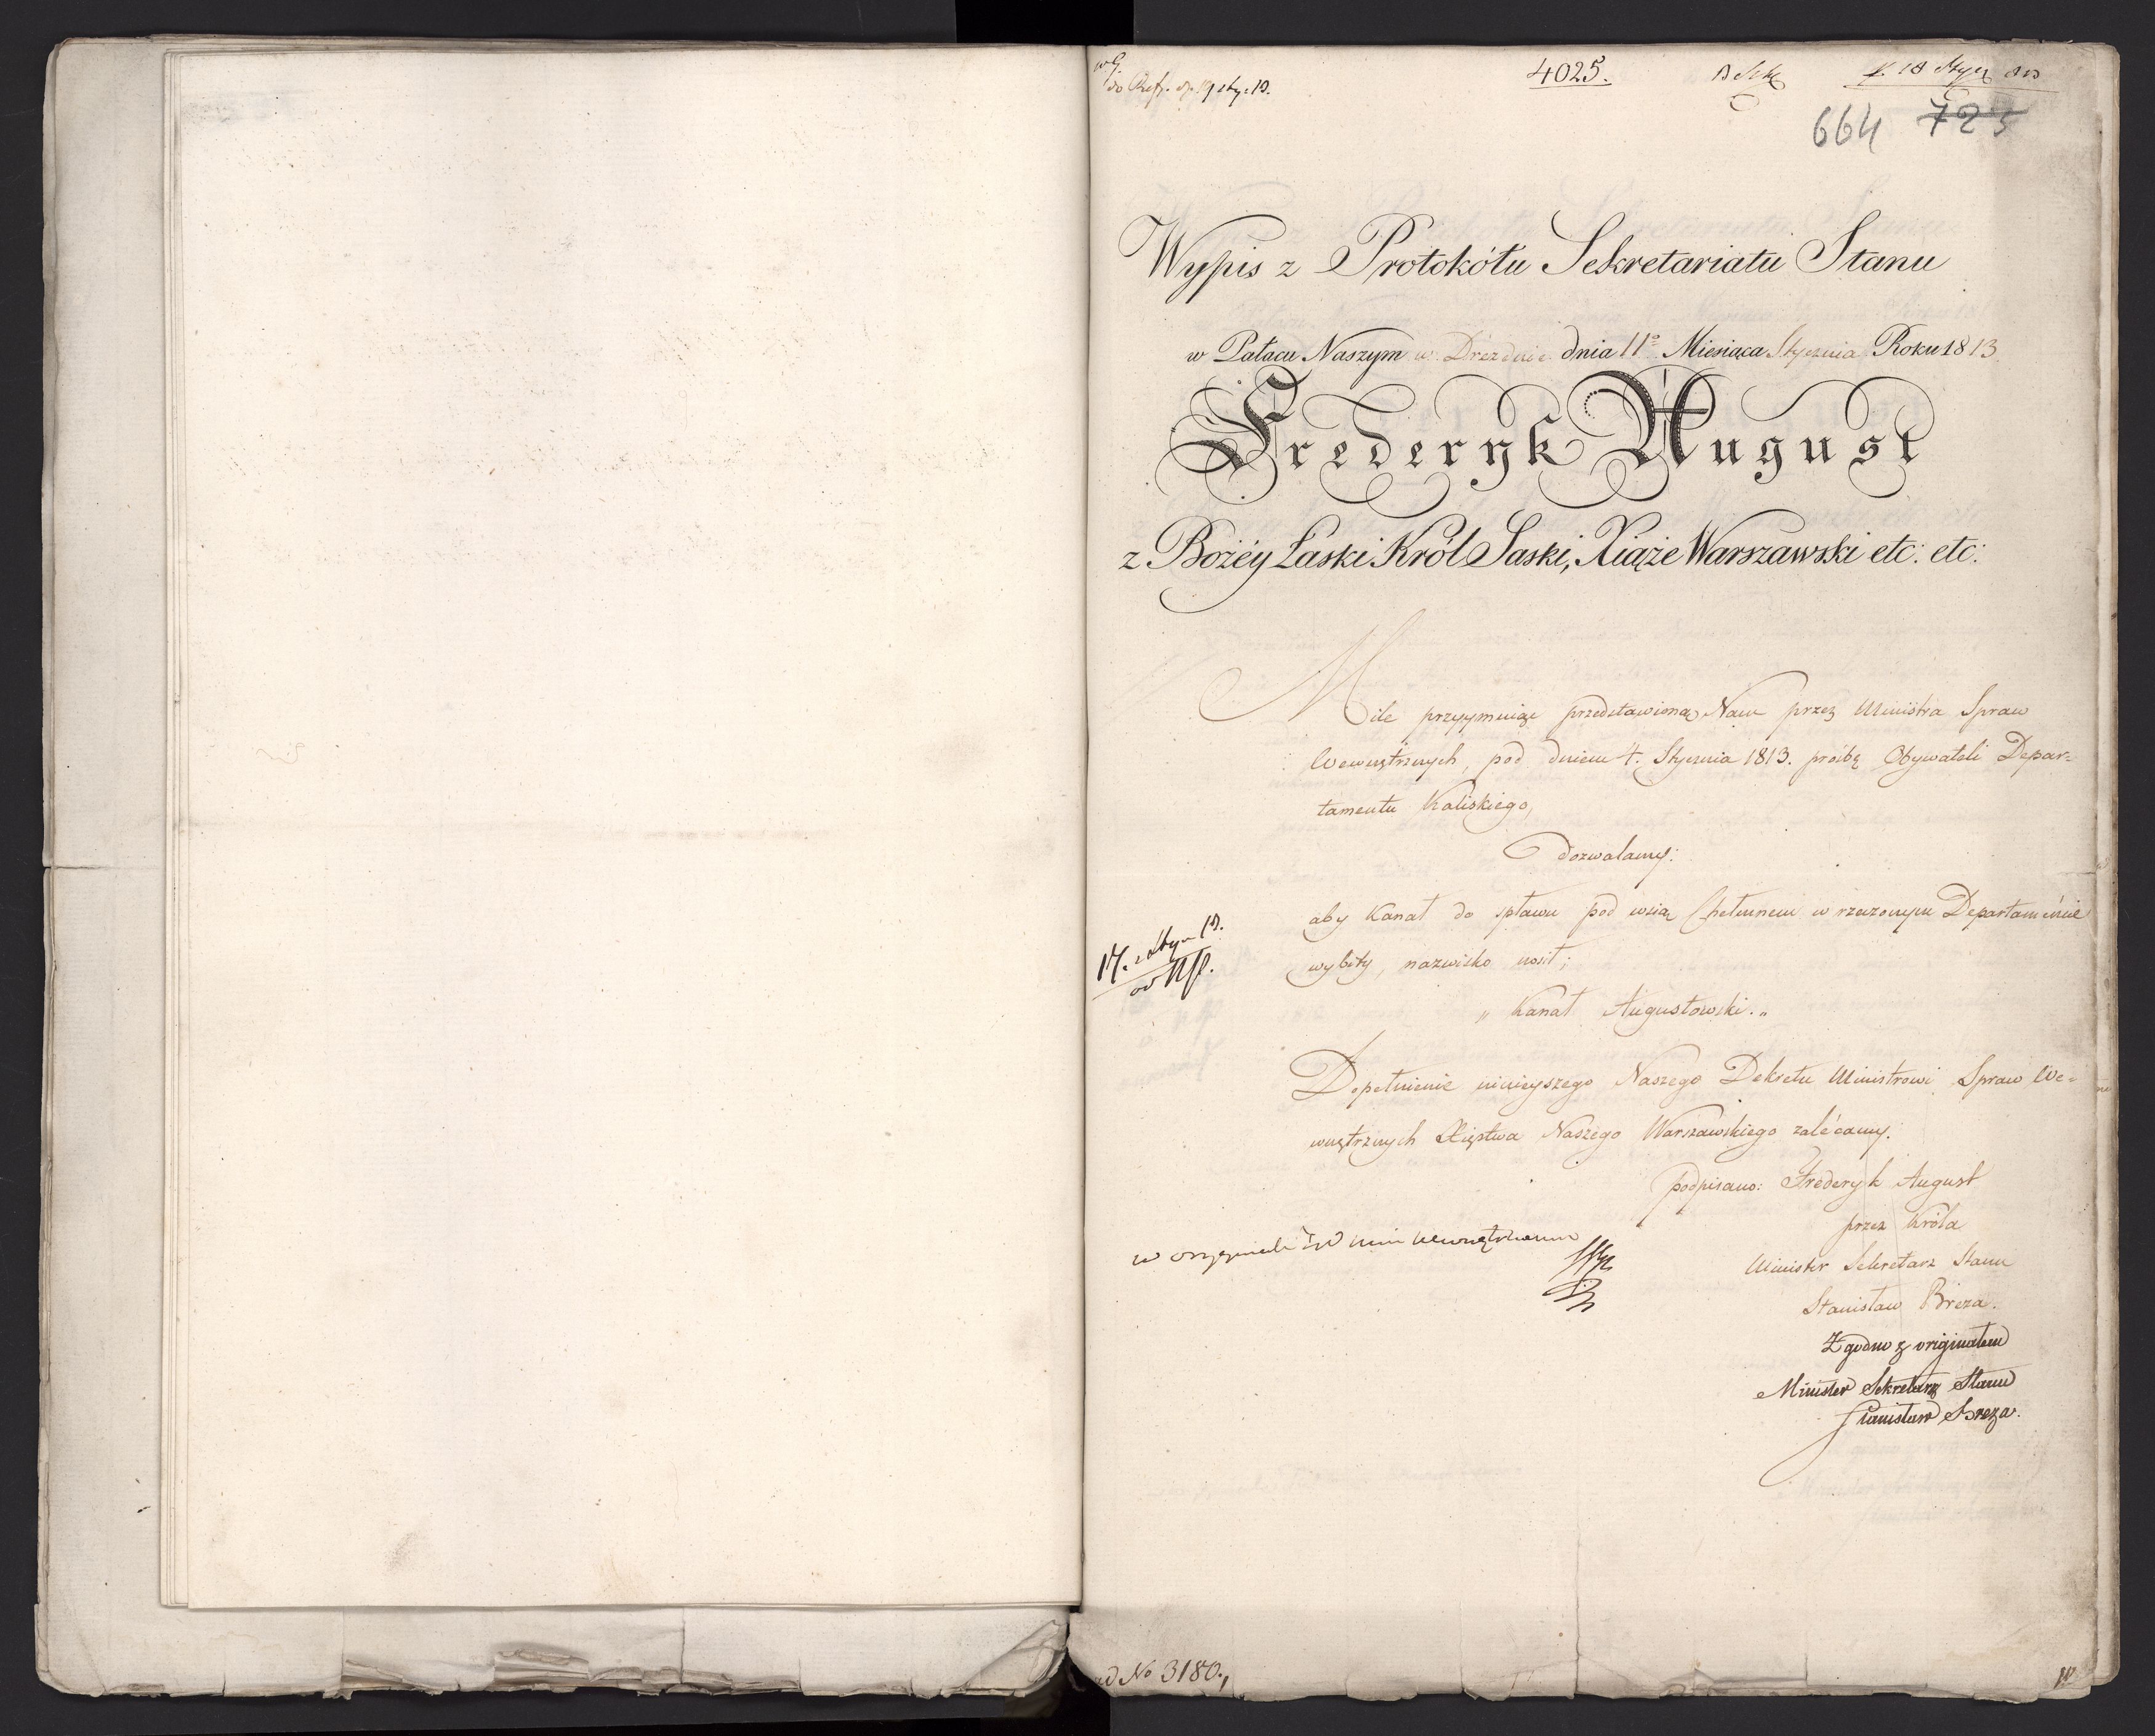 4025.
664 725
Wypis z Protokółu Sekretariatu Stanu
w Pałacu Naszym w Dreźdnie dnia 11º Miesiąca Stycznia Roku 1813.
Frederyk August
z Bożéy Łaski Król Saski, Xiąże Warszawski etc: etc:
Mile przyymuiąc przedstawioną Nam przez Ministra Spraw
Wewnętrznych, pod dniem 4. Stycznia 1813. prośbę Obywateli Depar-
tamentu Kaliskiego,
Dozwalamy:
aby Kanał do spławu pod wsią Chełmnem w rzeczonym Departamencie
wybity, nazwisko nosił;
„ Kanał Augustowski.„
Dopełnienie ninieyszego Naszego Dekretu Ministrowi Spraw We-
wnętrznych Xięstwa Naszego Warszawskiego zalécamy.
podpisano: Frederyk August
przez Króla
Minister Sekretarz Stanu
Stanisław Breza.
Zgodno z originałem
Minister Sekretarz Stanu
Stanisław Breza.
ad No 3180.,